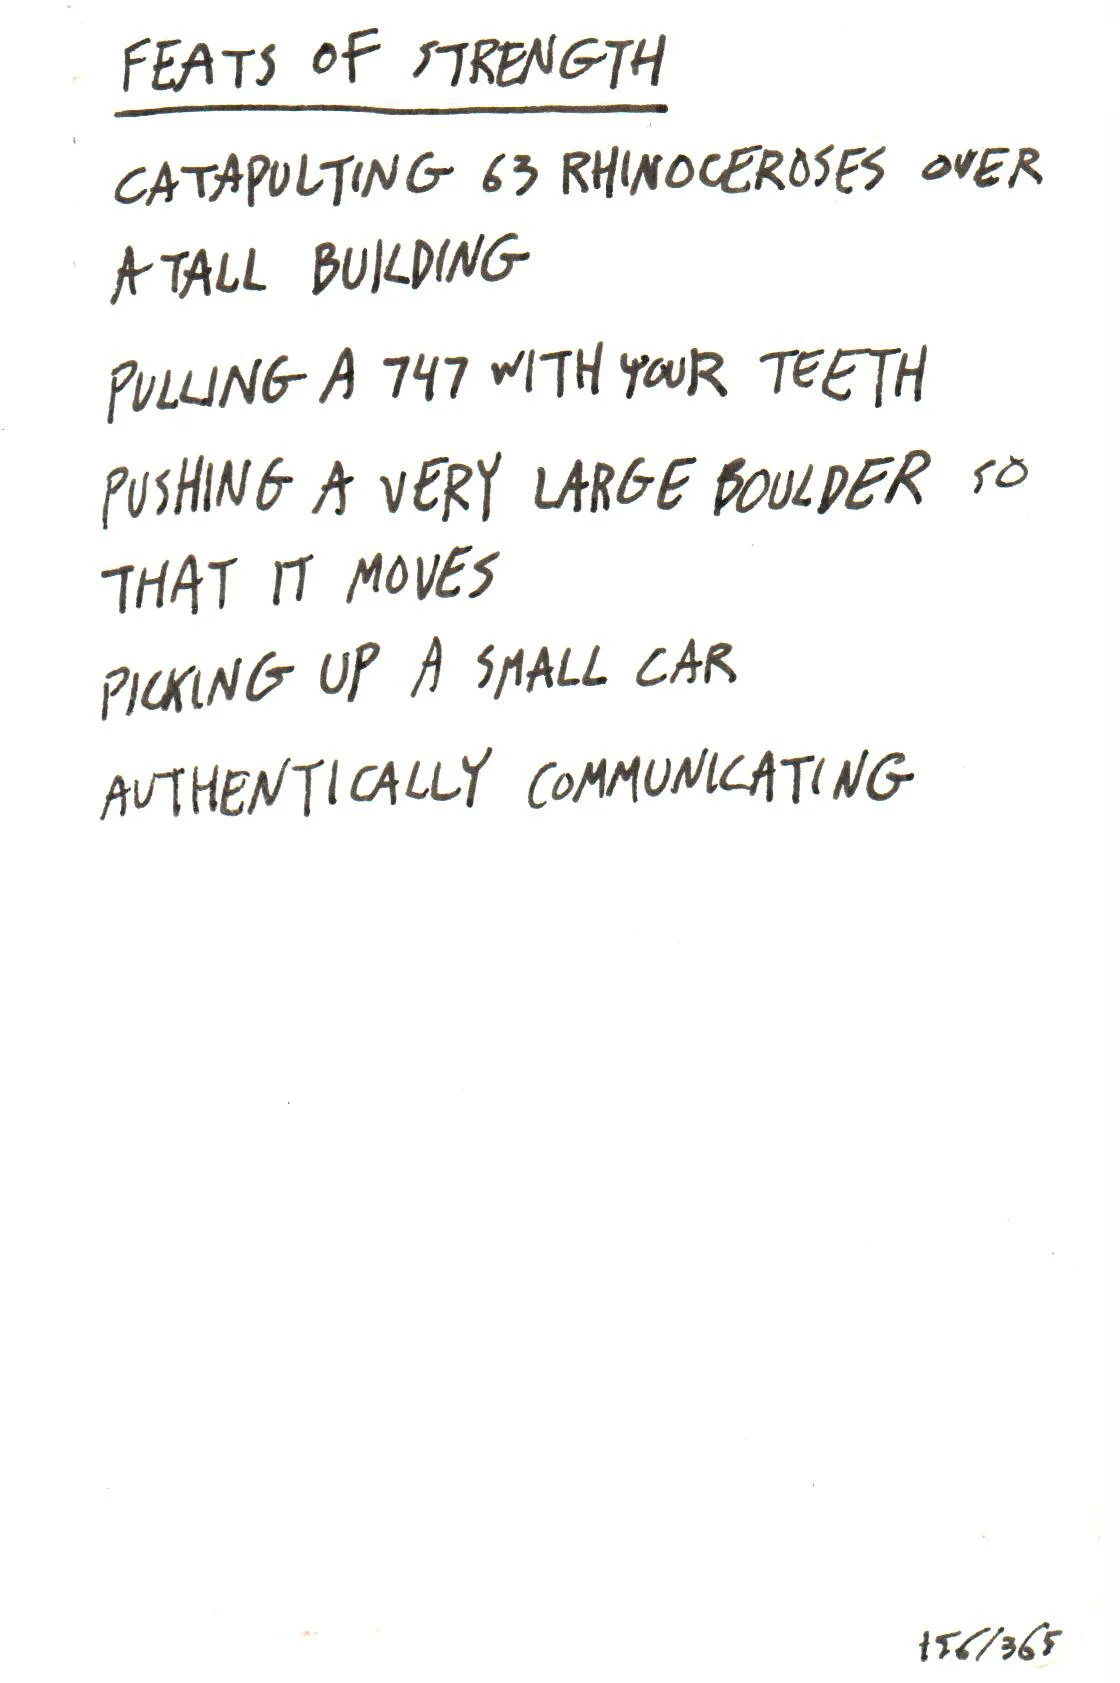 FEATS OF STRENGTH
CATAPULTING 63 RHINOCEROSES OVER
A TALL BUILDING
PULLING A 747 WITH YOUR TEETH
PUSHING A VERY LARGE BOULDER SO
THAT IT MOVES
PICKING UP A SMALL CAR
AUTHENTICALLY COMMUNICATING
156/365